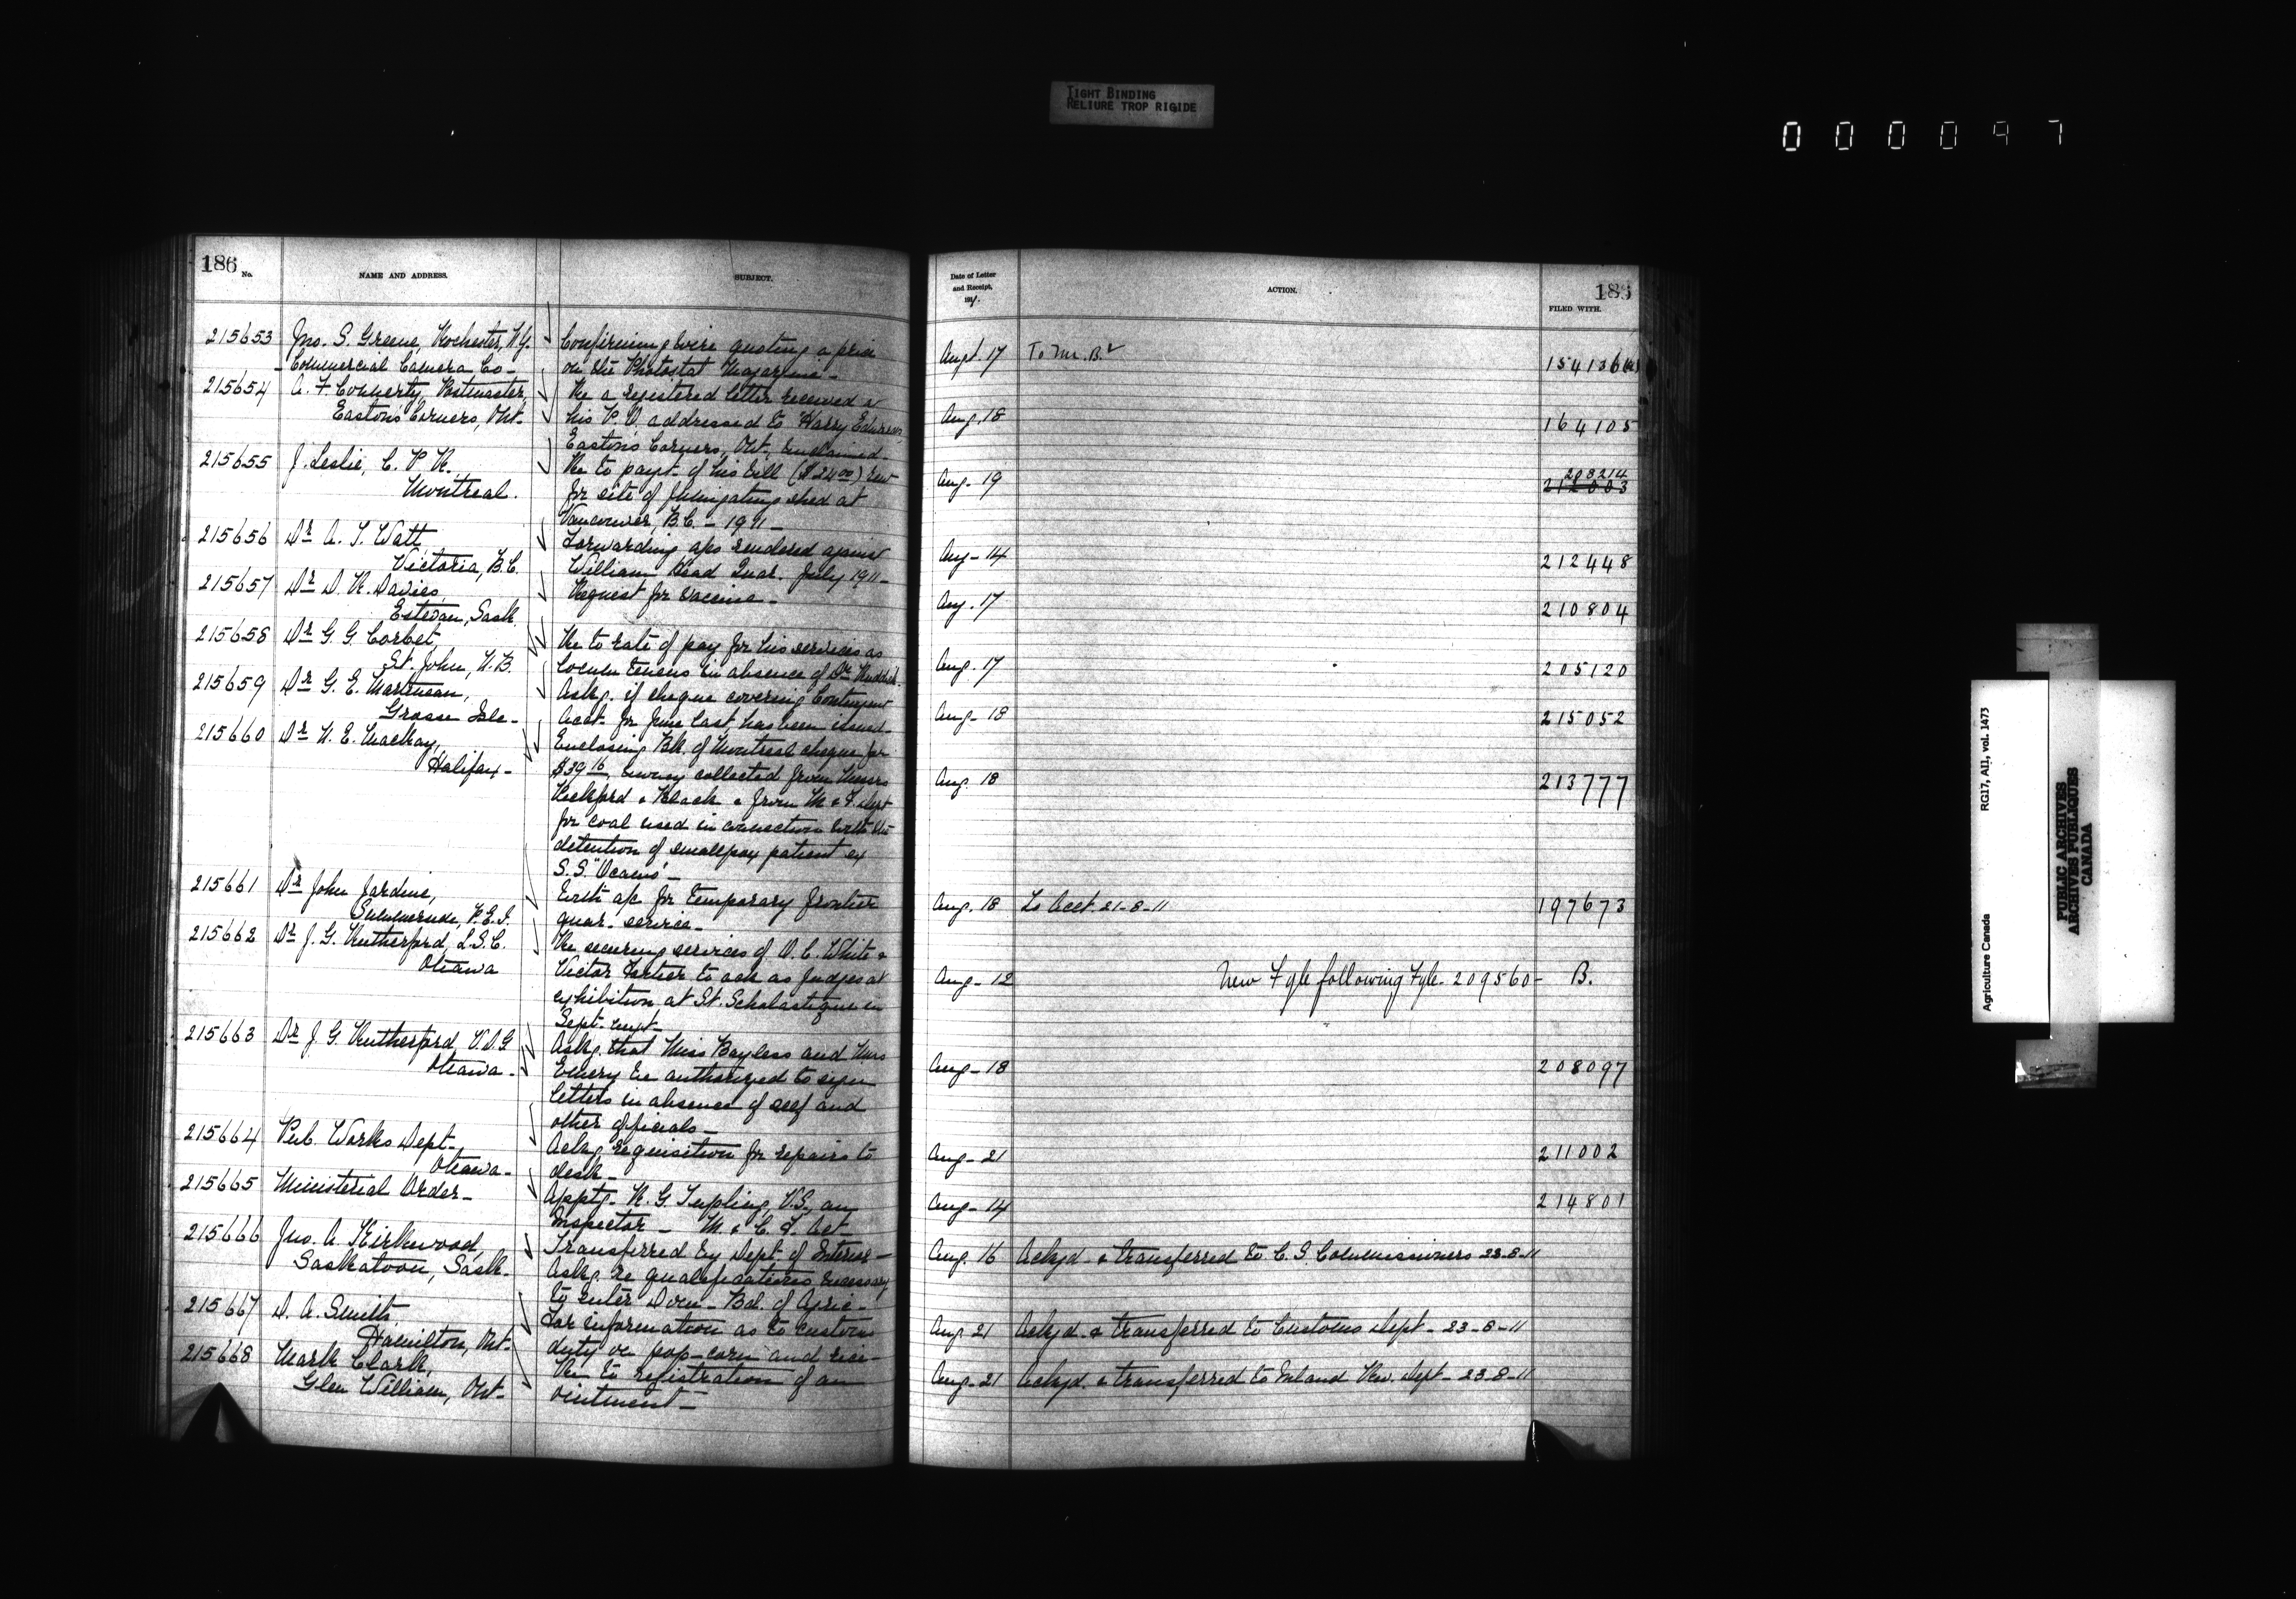 TIGHT BINDING
RELIURE TROP RIGIDE
000097
186
No.
NAME AND ADDRESS.
SUBJECT.
215653
Jno. S. Greene, Rochester, N.Y.
Commercial Camera Co-
Confirming wire quoting a price
on the Photostat Magazine-
215654
A. F. Connerty, Postmaster,
Easton's Corners, Ont-
Re a registered letter received at
his P.O. addressed to "Harry
Easton's Corners, Ont., unclaimed-
215655
J. Leslie, C. P. R.,
Montreal.
Re to payt. of his bill ($24.00) rent
for site of fumigating shed at
Vancouver, B.C. - 1911-
215656
Dr A. T. Watt,
Victoria, B.C.
Forwarding a/cs rendered against
William Head Quar. July 1911-
215657
Dr D. R. Davies,
Estevan, Sask.
Request for vaccine-
215658
Dr G. G. Corbet,
St. John, N.B.
Re to rate of pay for his services as
locum tenens in absence of Dr Ruddick.
215659
Dr G. E. Martineau,
Grosse Isle-
Askg. if cheque covering Contingent
Acct- for June last, has been issued-
215660
Dr N. E. MacKay,
Halifax-
Enclosing Bk. of Montreal cheque for
$39.16, money collected from Messrs
Pickford & Black & from M & F. Dept
for coal used in connection with the
detention of smallpox patient ex
S.S. "Ocamo"-
215661
Dr John Jardine,
Summerside, P.E.I.
With a/c for temporary frontier
quar- service-
215662
Dr J. G. Rutherford, L.S.C.
Ottawa
Re securing services of O. C. White &
Victor Fortier to act as Judges at
exhibition at St. Scholastique in
Sept. next-
215663
Dr J. G. Rutherford V.D.G
Ottawa-
Askg. that Miss Bayless and Miss
Emery be authorized to sign
letters in absence of self and
other officials-
215664
Pub. Works Dept-
Ottawa-
Ackg. requisition for repairs to
desk-
215665
Ministerial Order-
Apptg- R. G. Tupling, V.S., an
Inspector- M. & C. F. Act
215666
Jno. A. Kirkwood,
Saskatoon, Sask-
Transferred by Dept. of Interior-
Askg. re qualifications necessary
to enter Dom- Bd. of Agric-
215667
D. A. Smith,
Hamilton, Ont-
For information as to customs
duty on pop-corn and rice-
215668
Mark Clark,
Glen William, Ont-
Re to registration of an
ointment-
Date of Letter
and Receipt,
191/.
ACTION.
FILED WITH.
Augt. 17
To Mr. B.
154136
Aug. 18
164105
Aug- 19
208214
212003
Aug- 14
212448
Aug. 17
210804
Aug. 17
205120
Aug- 18
215052
Aug. 18
213777
Aug. 18
To Acct. 21-8-11
197673
Aug- 12
New Fyle following Fyle- 209560-
B.
Aug- 18
208097
Aug- 21
211002
Aug- 14
214801
Aug. 16
Ackgd- & transferred to C. S. Commissioners 23-8-11
Aug 21
Ackgd- & transferred to Customs Dept- 23-8-11
Aug- 21
Ackgd. & transferred to Inland Rev. Dept- 23-8-11
Agriculture Canada
RG17, AII, vol. 1473
PUBLIC ARCHIVES
ARCHIVES PUBLIQUES
CANADA